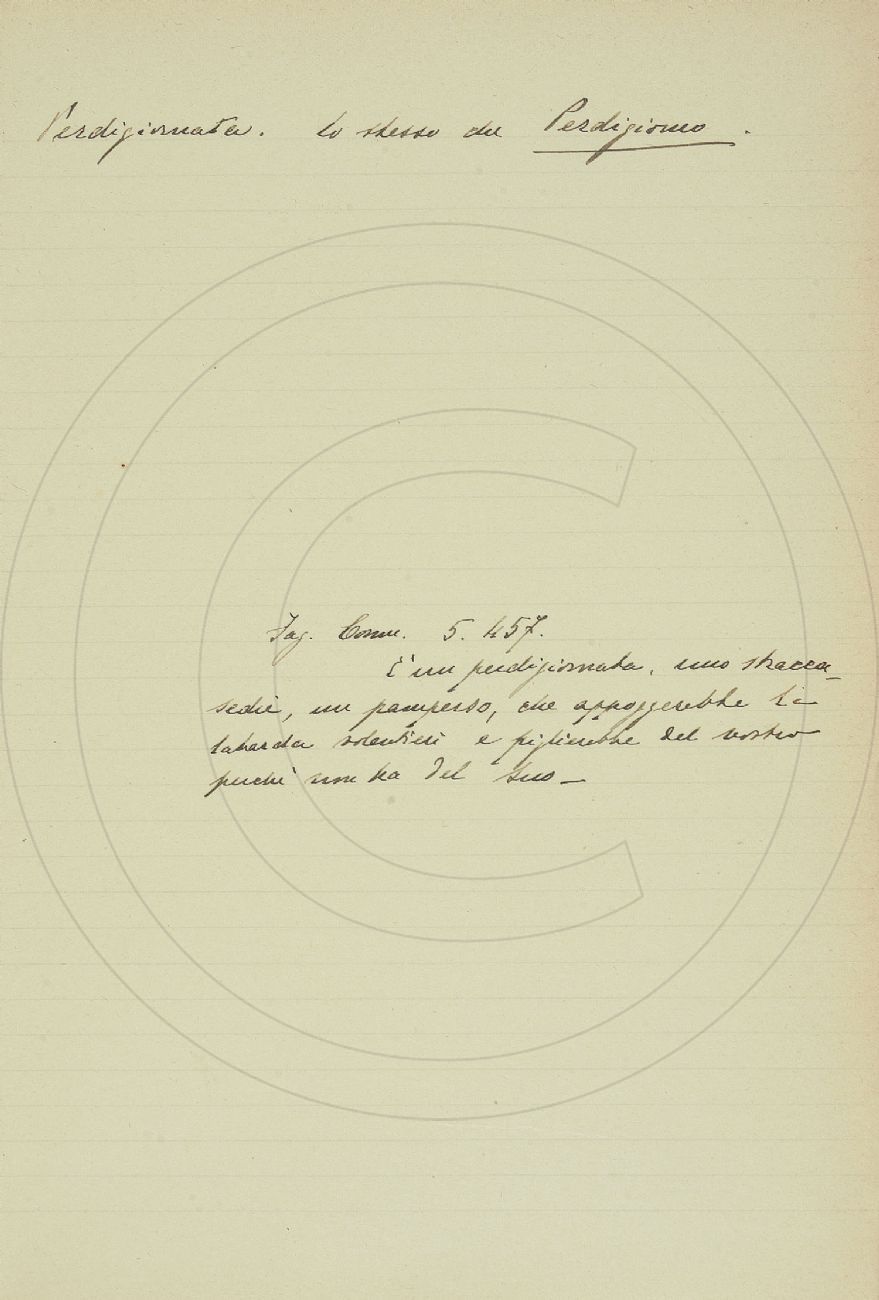 Perdigiornata. lo stesso che Perdigiorno.
Fag. Comm. 5. 457.
È un perdigiornata, uno stracca-
sedie, un pamperso, che appoggerebbe la
labarda volentieri e piglierebbe del vostro
perchè non ha del suo_